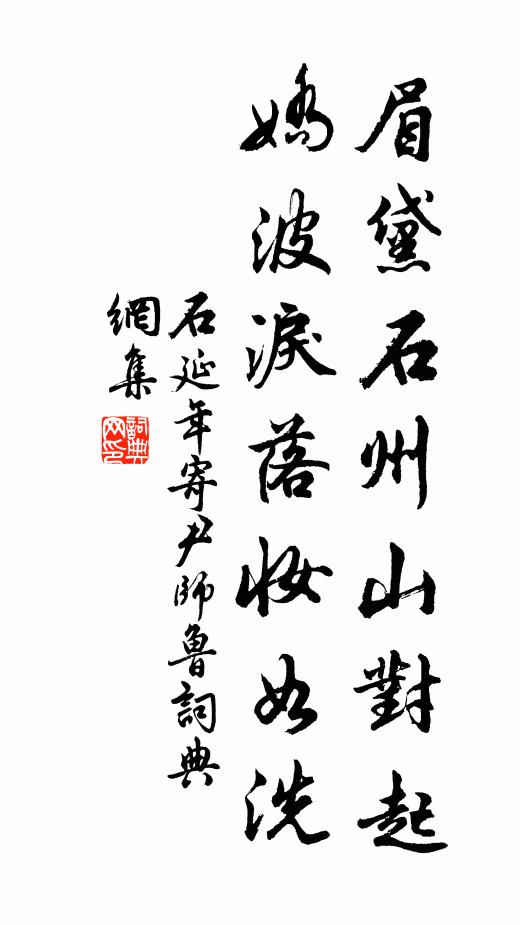 眉黛石州山對起
嬌波淚落妝如洗
石延年寄尹師魯詞典
網集
詞典
網印